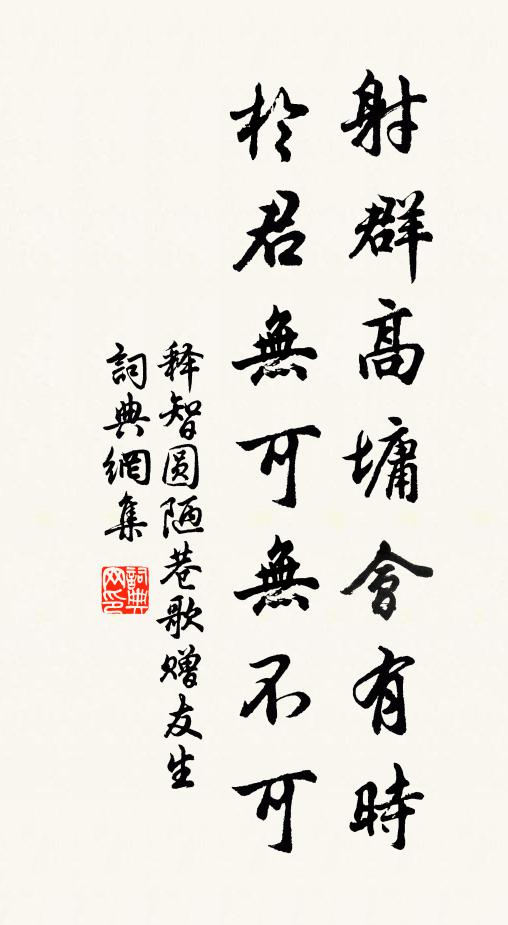 射群高墉會有時
於君無可無不可
释智圆陋巷歌赠友生
詞典網集
詞典
网印